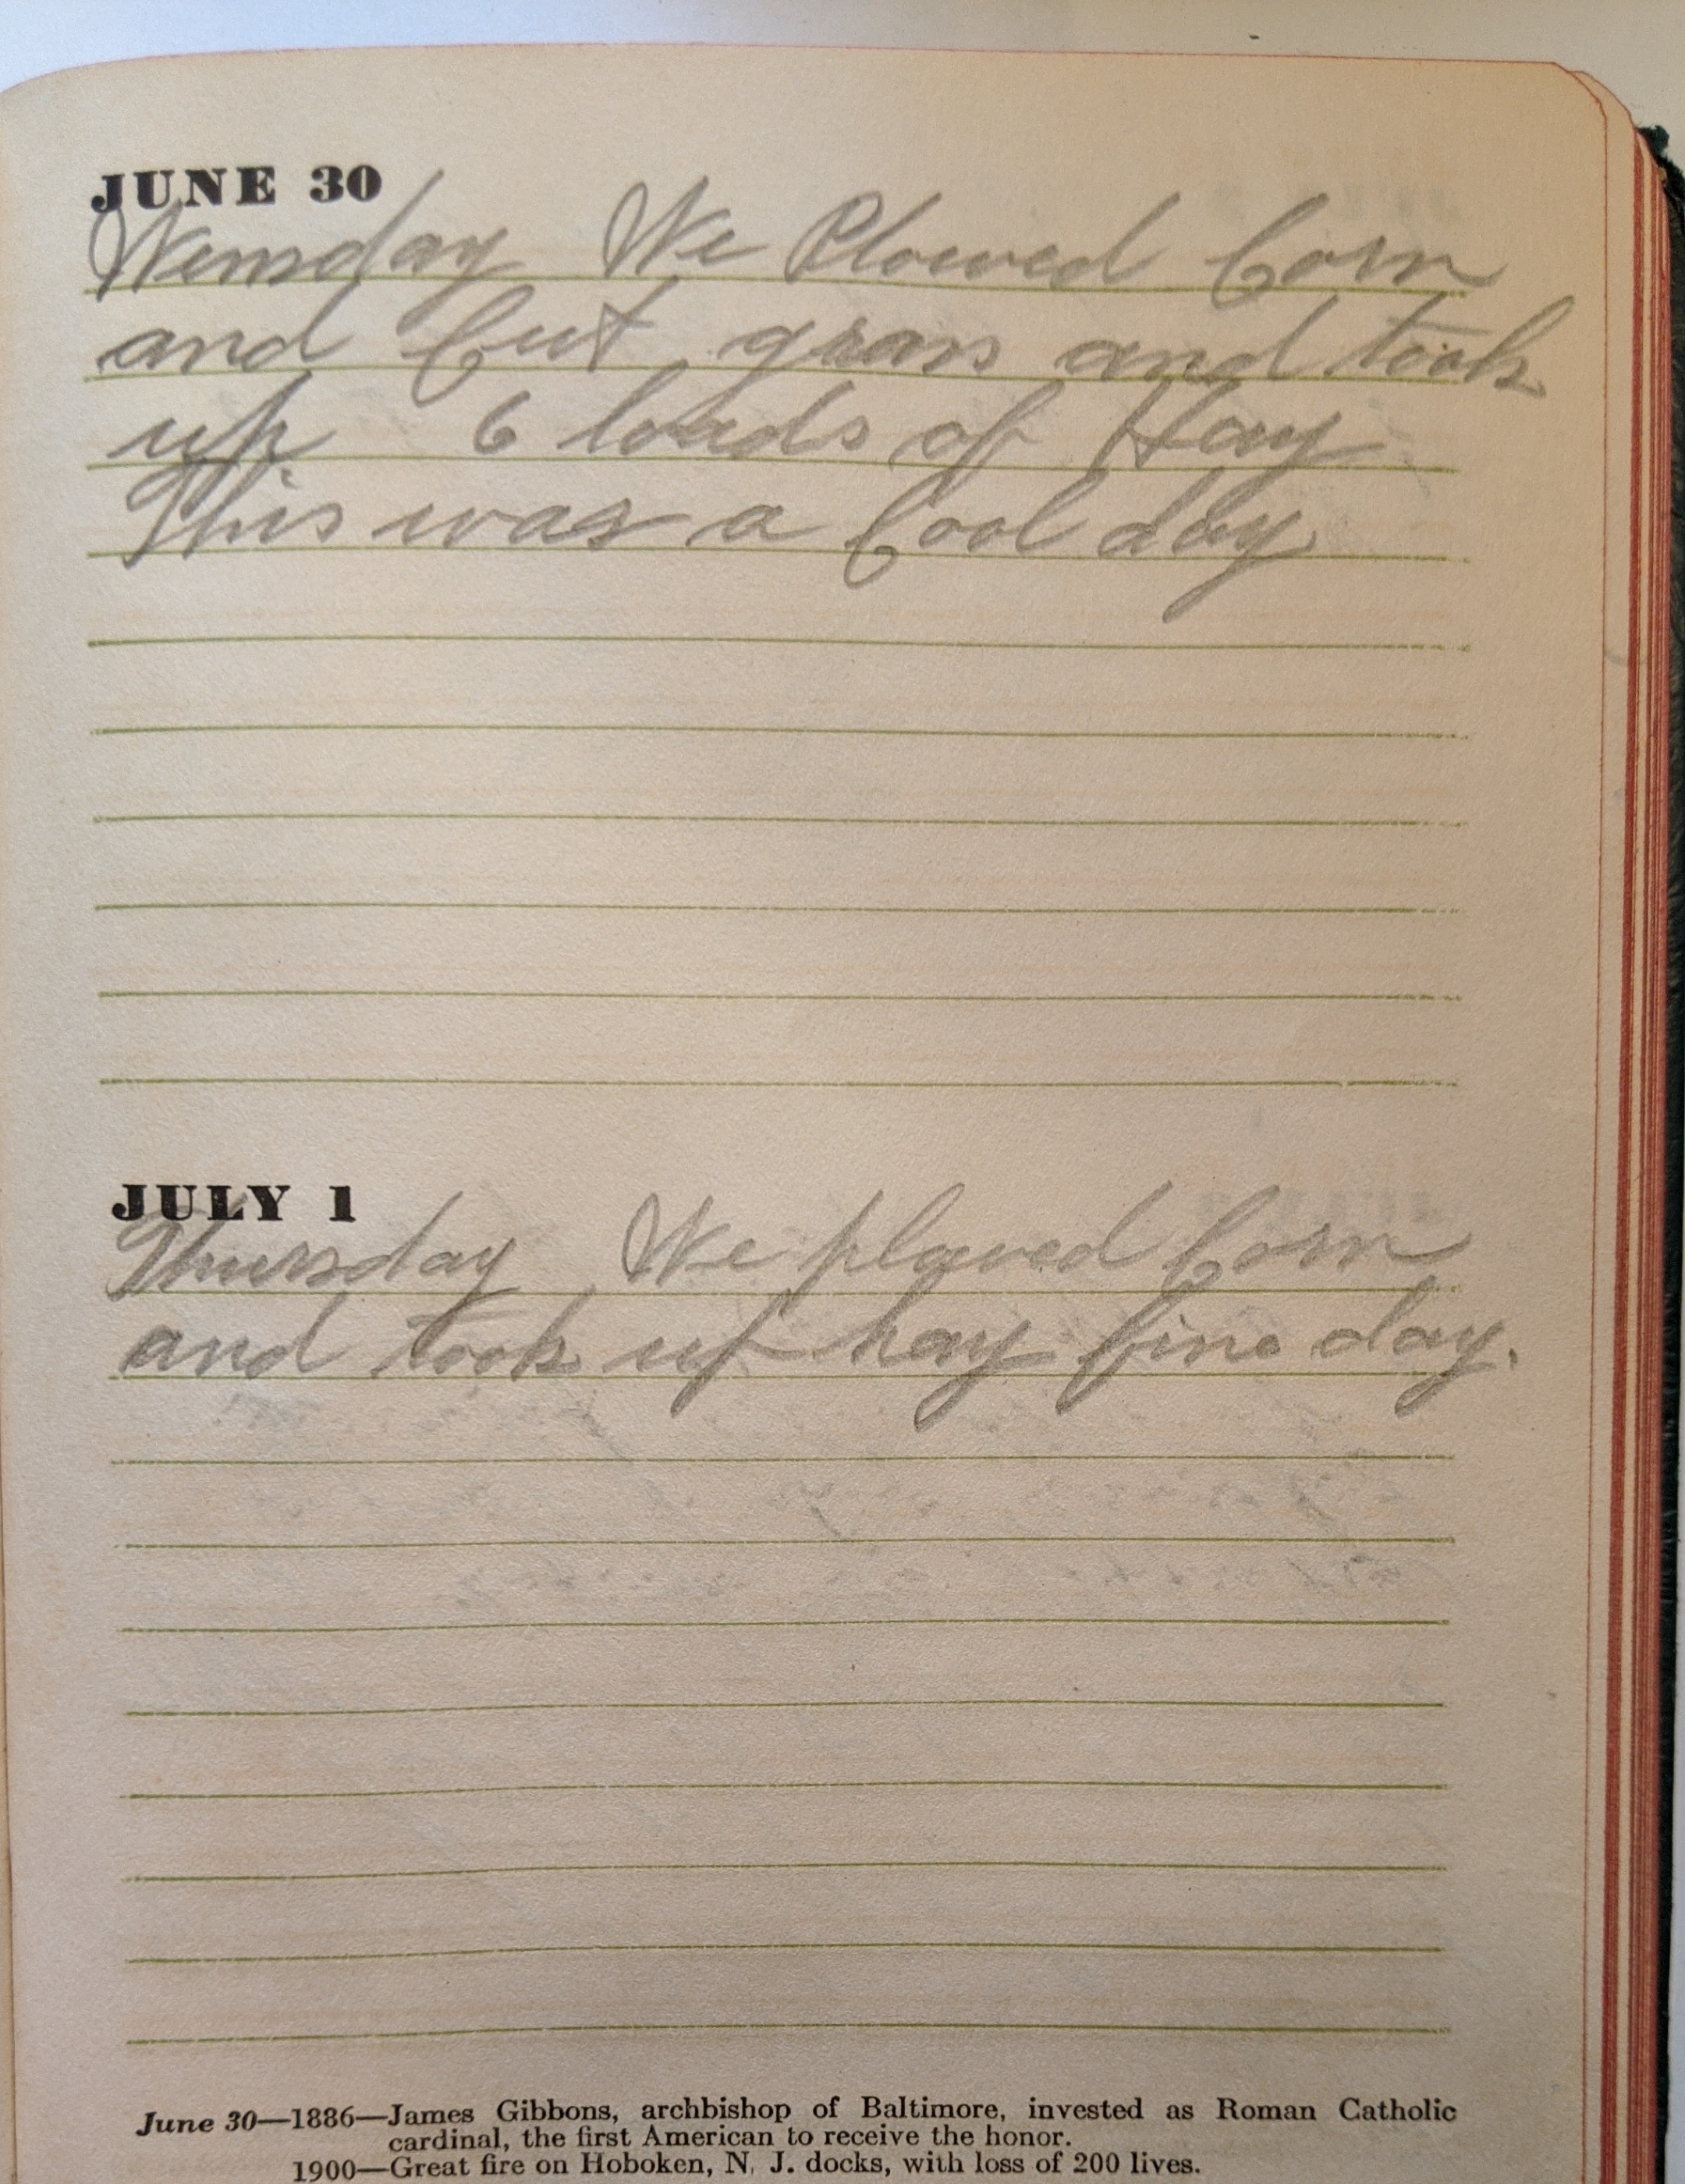 JUNE 30
Wemsday We Plowed Corn
and Cut grass and took
up 6 loads of Hay
This was a Cool day
JULY 1
Thursday We plowed Corn
and took up hay fine day.
June 30—1886—James Gibbons, archbishop of Baltimore, invested as Roman Catholic
cardinal, the first American to receive the honor.
1900—Great fire on Hoboken, N. J. docks, with loss of 200 lives.